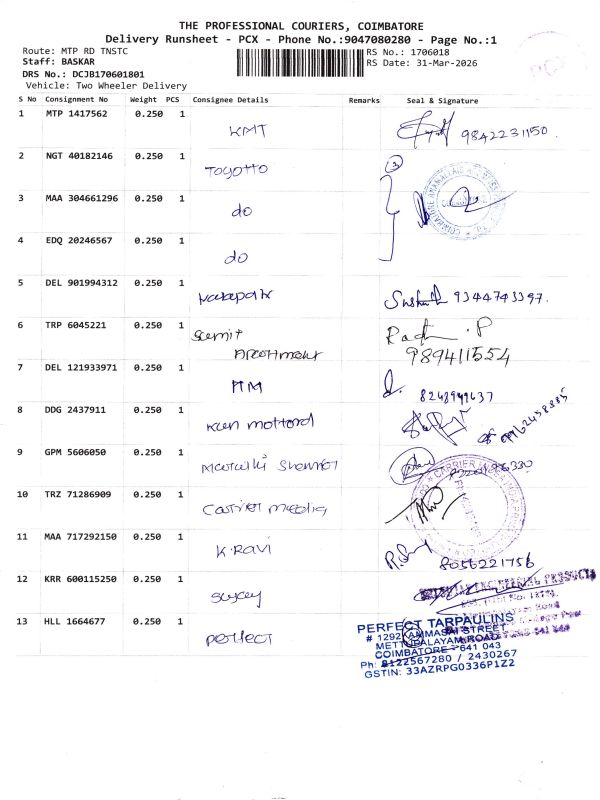 THE PROFESSIONAL COURIERS, COIMBATORE
Delivery Runsheet - PCX - Phone No.:9047080280 - Page No.:1
Route: MTP RD TNSTC
RS No.: 1706018
Staff: BASKAR
RS Date: 31-Mar-2026
DRS No.: DCJB170601801
Vehicle: Two Wheeler Delivery
S No Consignment No Weight PCS Consignee Details Remarks Seal & Signature
1 MTP 1417562 0.250 1 KMT 9842231150.
2 NGT 40182146 0.250 1 TOYOTTO
3 MAA 304661296 0.250 1 do
4 EDQ 20246567 0.250 1 do
5 DEL 901994312 0.250 1 9344743397.
6 TRP 6045221 0.250 1 P
989411554
7 DEL 121933971 0.250 1
8248949637
8 DDG 2437911 0.250 1
9 GPM 5606050 0.250 1
10 TRZ 71286909 0.250 1 Carrier media
11 MAA 717292150 0.250 1 K.Ravi
8056221756
12 KRR 600115250 0.250 1
13 HLL 1664677 0.250 1 perfect
PERFECT TARPAULINS
# 1292, KAMMASAI STREET
METTUPALAYAM ROAD
COIMBATORE - 641 043
Ph: 8122567280 / 2430267
GSTIN: 33AZRPG0336P1Z2